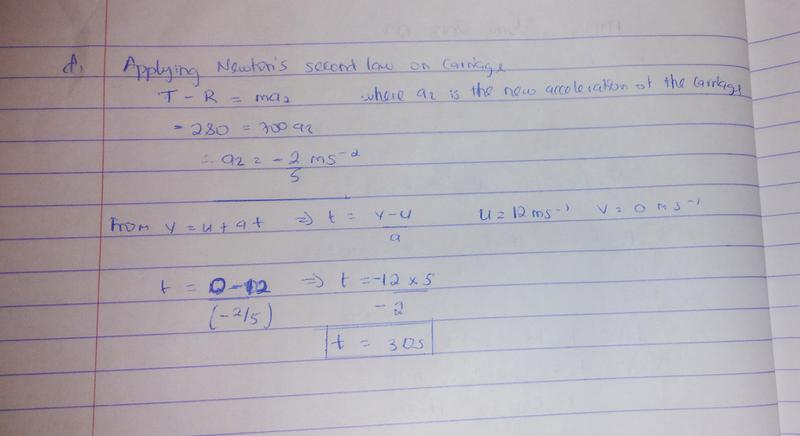 d. Applying Newton's second law on carriage
T - R = ma₂ where a₂ is the new accoleration of the carriage
- 280 = 700 a₂
∴ a₂ = -2/5 ms⁻²
From v = u + at ⇒ t = (v-u)/a u = 12 ms⁻¹ v = 0 ms⁻¹
t = (0-12)/(-2/5) ⇒ t = (-12 × 5)/-2
t = 30s